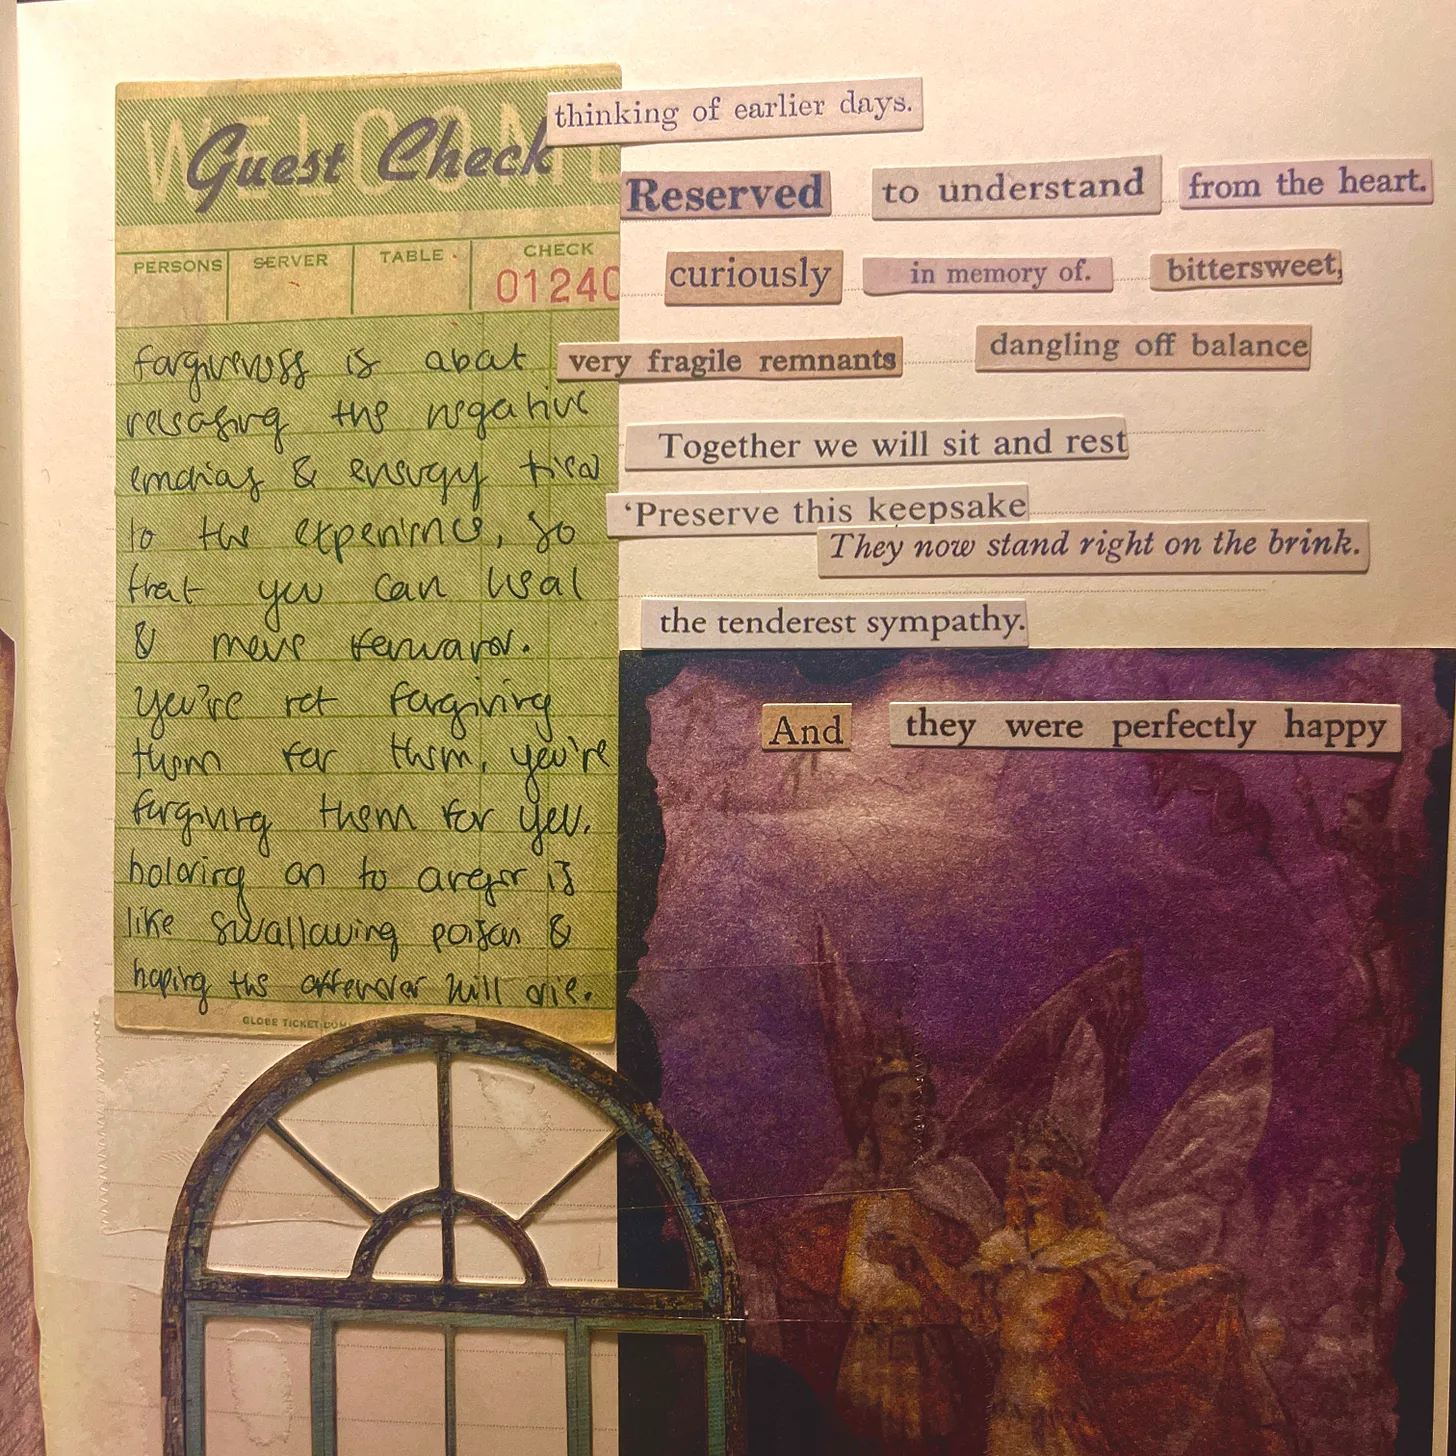 WELCOME
Guest Check
PERSONS SERVER TABLE CHECK
01240
forgiveness is about
releasing the negative
emotions & energy tied
to the experience, so
that you can heal
& move forward.
you're not forgiving
them for them, you're
forgiving them for you.
holding on to anger is
like swallowing poison &
hoping the offender will die.
GLOBE TICKET COM
thinking of earlier days.
Reserved to understand from the heart.
curiously in memory of. bittersweet,
very fragile remnants dangling off balance
Together we will sit and rest
‘Preserve this keepsake
They now stand right on the brink.
the tenderest sympathy.
And they were perfectly happy